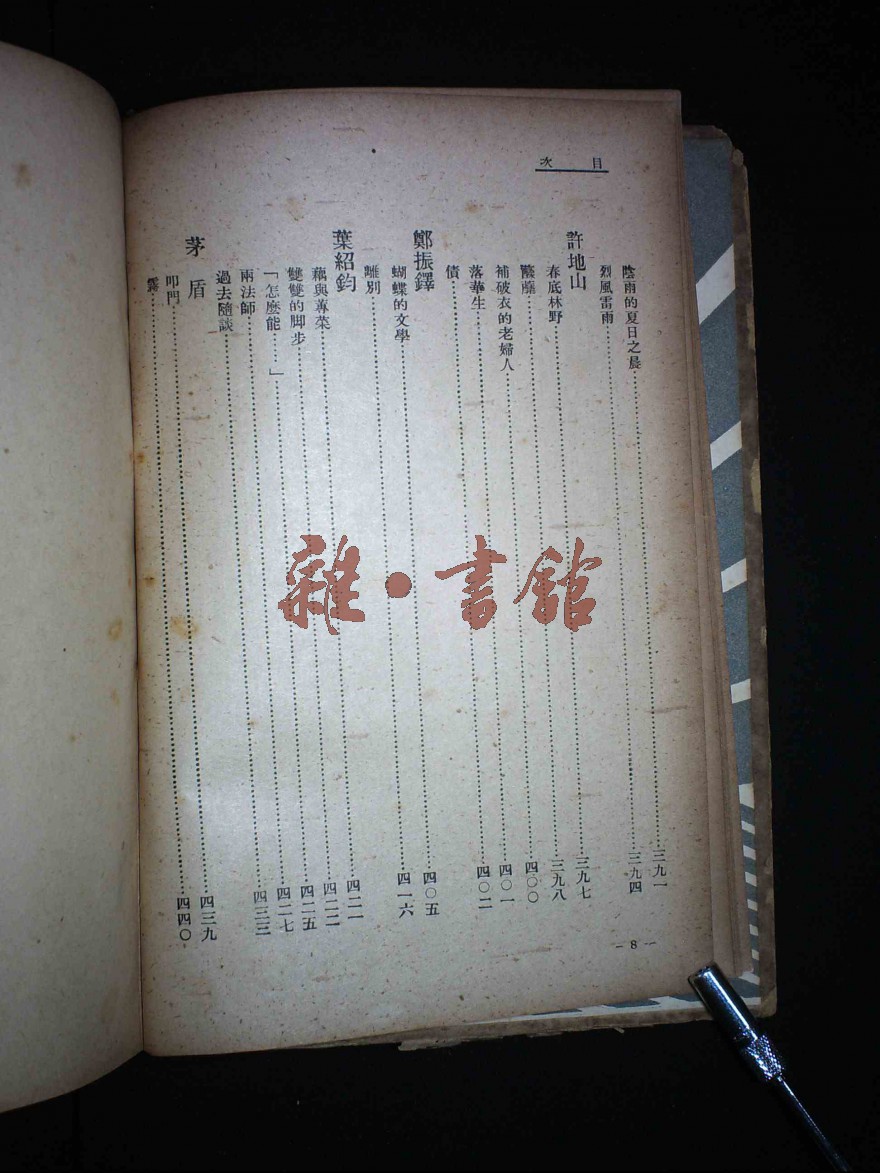 目次
陰雨的夏日之晨……三九一
烈風雷雨……三九四
許地山
春底林野……三九七
……三九八
補破衣的老婦人……四〇〇
落華生……四〇一
債……四〇二
鄭振鐸
蝴蝶的文學……四〇五
離別……四一六
葉紹鈞
藕與蓴菜……四二一
雙雙的脚步……四二二
「怎麽能……」……四二五
兩法師……四二七
過去隨談……四三三
茅盾
叩門……四三九
霧……四四〇
— 8 —
雜·書館